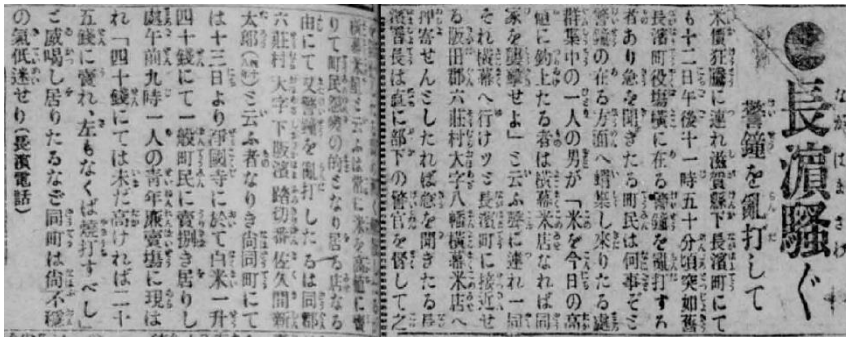 長濱騷ぐ
警鐘を亂打して
米價狂騰に連れ滋賀縣下長濱町にて
も十二日午後十一時五十分頃突如舊
長濱町役塲橫に在る警鐘を亂打する
者あり急を聞きたる町民は何事ぞと
警鐘の在る方面へ蝟集し來りたる處
群集中の一人の男が「米を今日の高
値に釣上たる者は橫幕米店なれば同
家を襲擊せよ」と云ふ聲に連れ一同
それ橫幕へ行けツと長濱町に接近せ
る阪田郡六莊村大字八幡橫幕米店へ
押寄せんとしたれば急を聞きたる長
濱署長は直に部下の警官を督して之
橫幕米店と云ふは常に米を高値に賣
りて町民怨嗟の的となり居る店なる
由にて又警鐘を亂打したるは同郡
六莊村大字下阪濱踏切番佐久間新
太郎と云ふ者なりき尙同町にて
は十三日より御國寺に於て白米一升
四十錢にて一般町民に賣捌き居りし
處午前九時一人の靑年廉賣塲に現は
れ「四十錢にては未だ高ければ二十
五錢に賣れ、左もなくば燒打すべし」
と威喝し居りたるなど同町は尙不穩
の氣低迷せり(長濱電話)